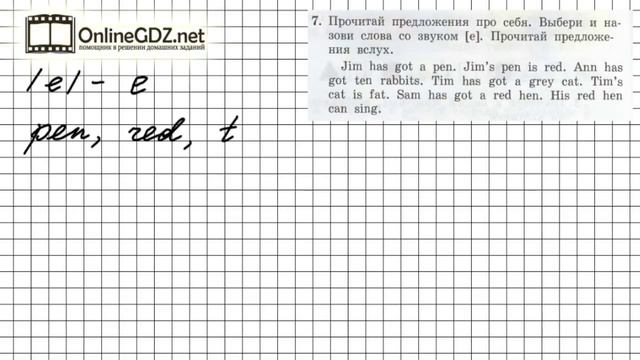 OnlineGDZ.net
помощник в решении домашних заданий
/e/ - e
pen, red, t
7. Прочитай предложения про себя. Выбери и на-
зови слова со звуком [e]. Прочитай предложе-
ния вслух.
Jim has got a pen. Jim's pen is red. Ann has
got ten rabbits. Tim has got a grey cat. Tim's
cat is fat. Sam has got a red hen. His red hen
can sing.